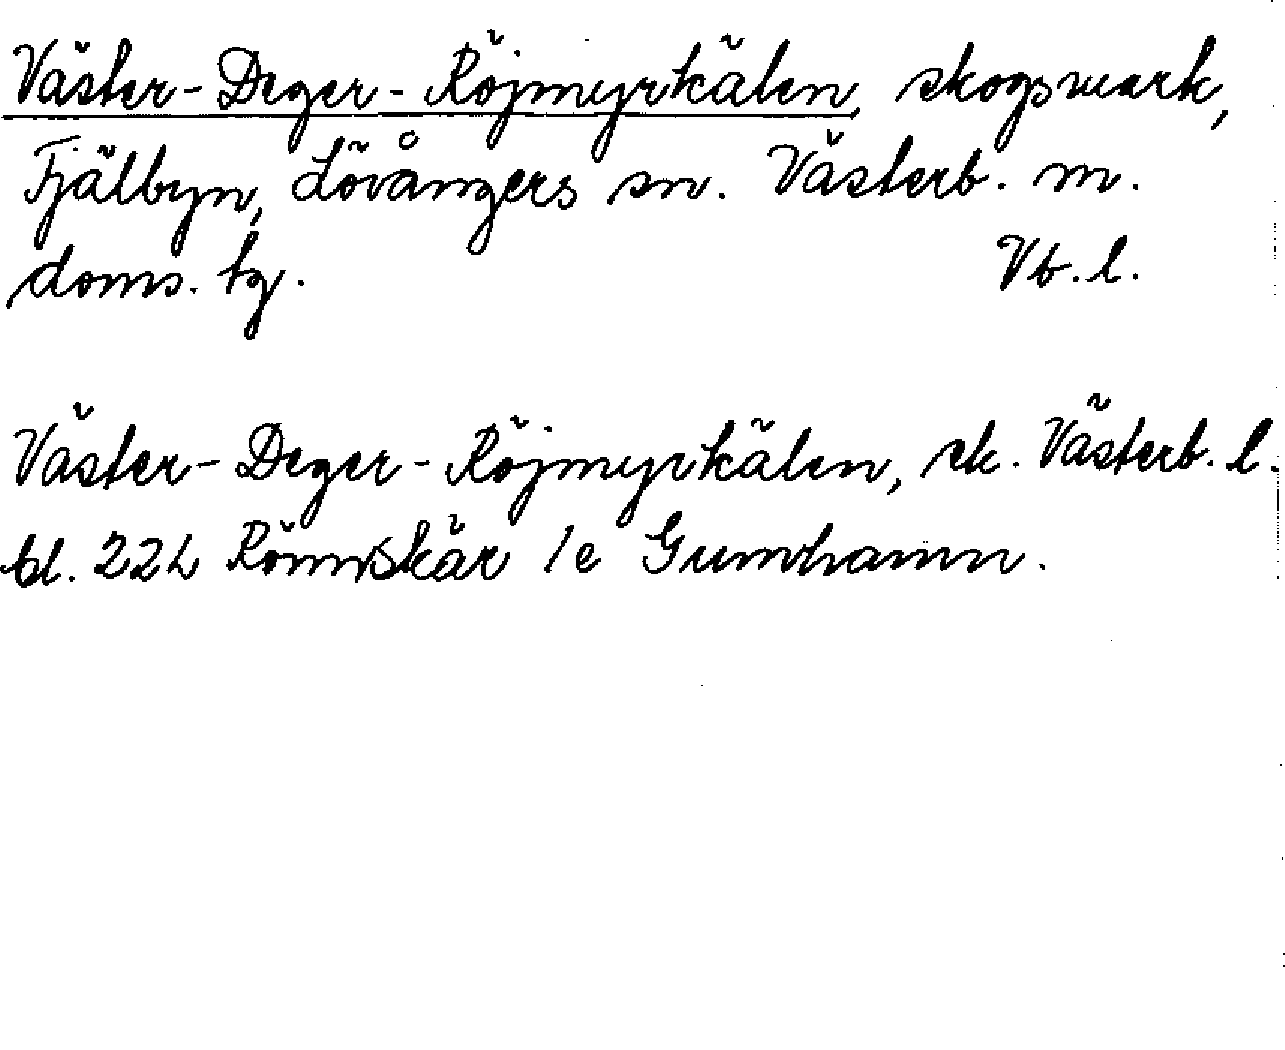 Väster-Deger-Röjmyrkälen, skogsmark,
Fjälbyn, Lövångers sn. Västerb. m.
doms. tg. Vb. l.
Väster-Deger-Röjmyrkälen, sk. Västerb. l.
bl. 22L Rönnskär 1e Gumhamn.